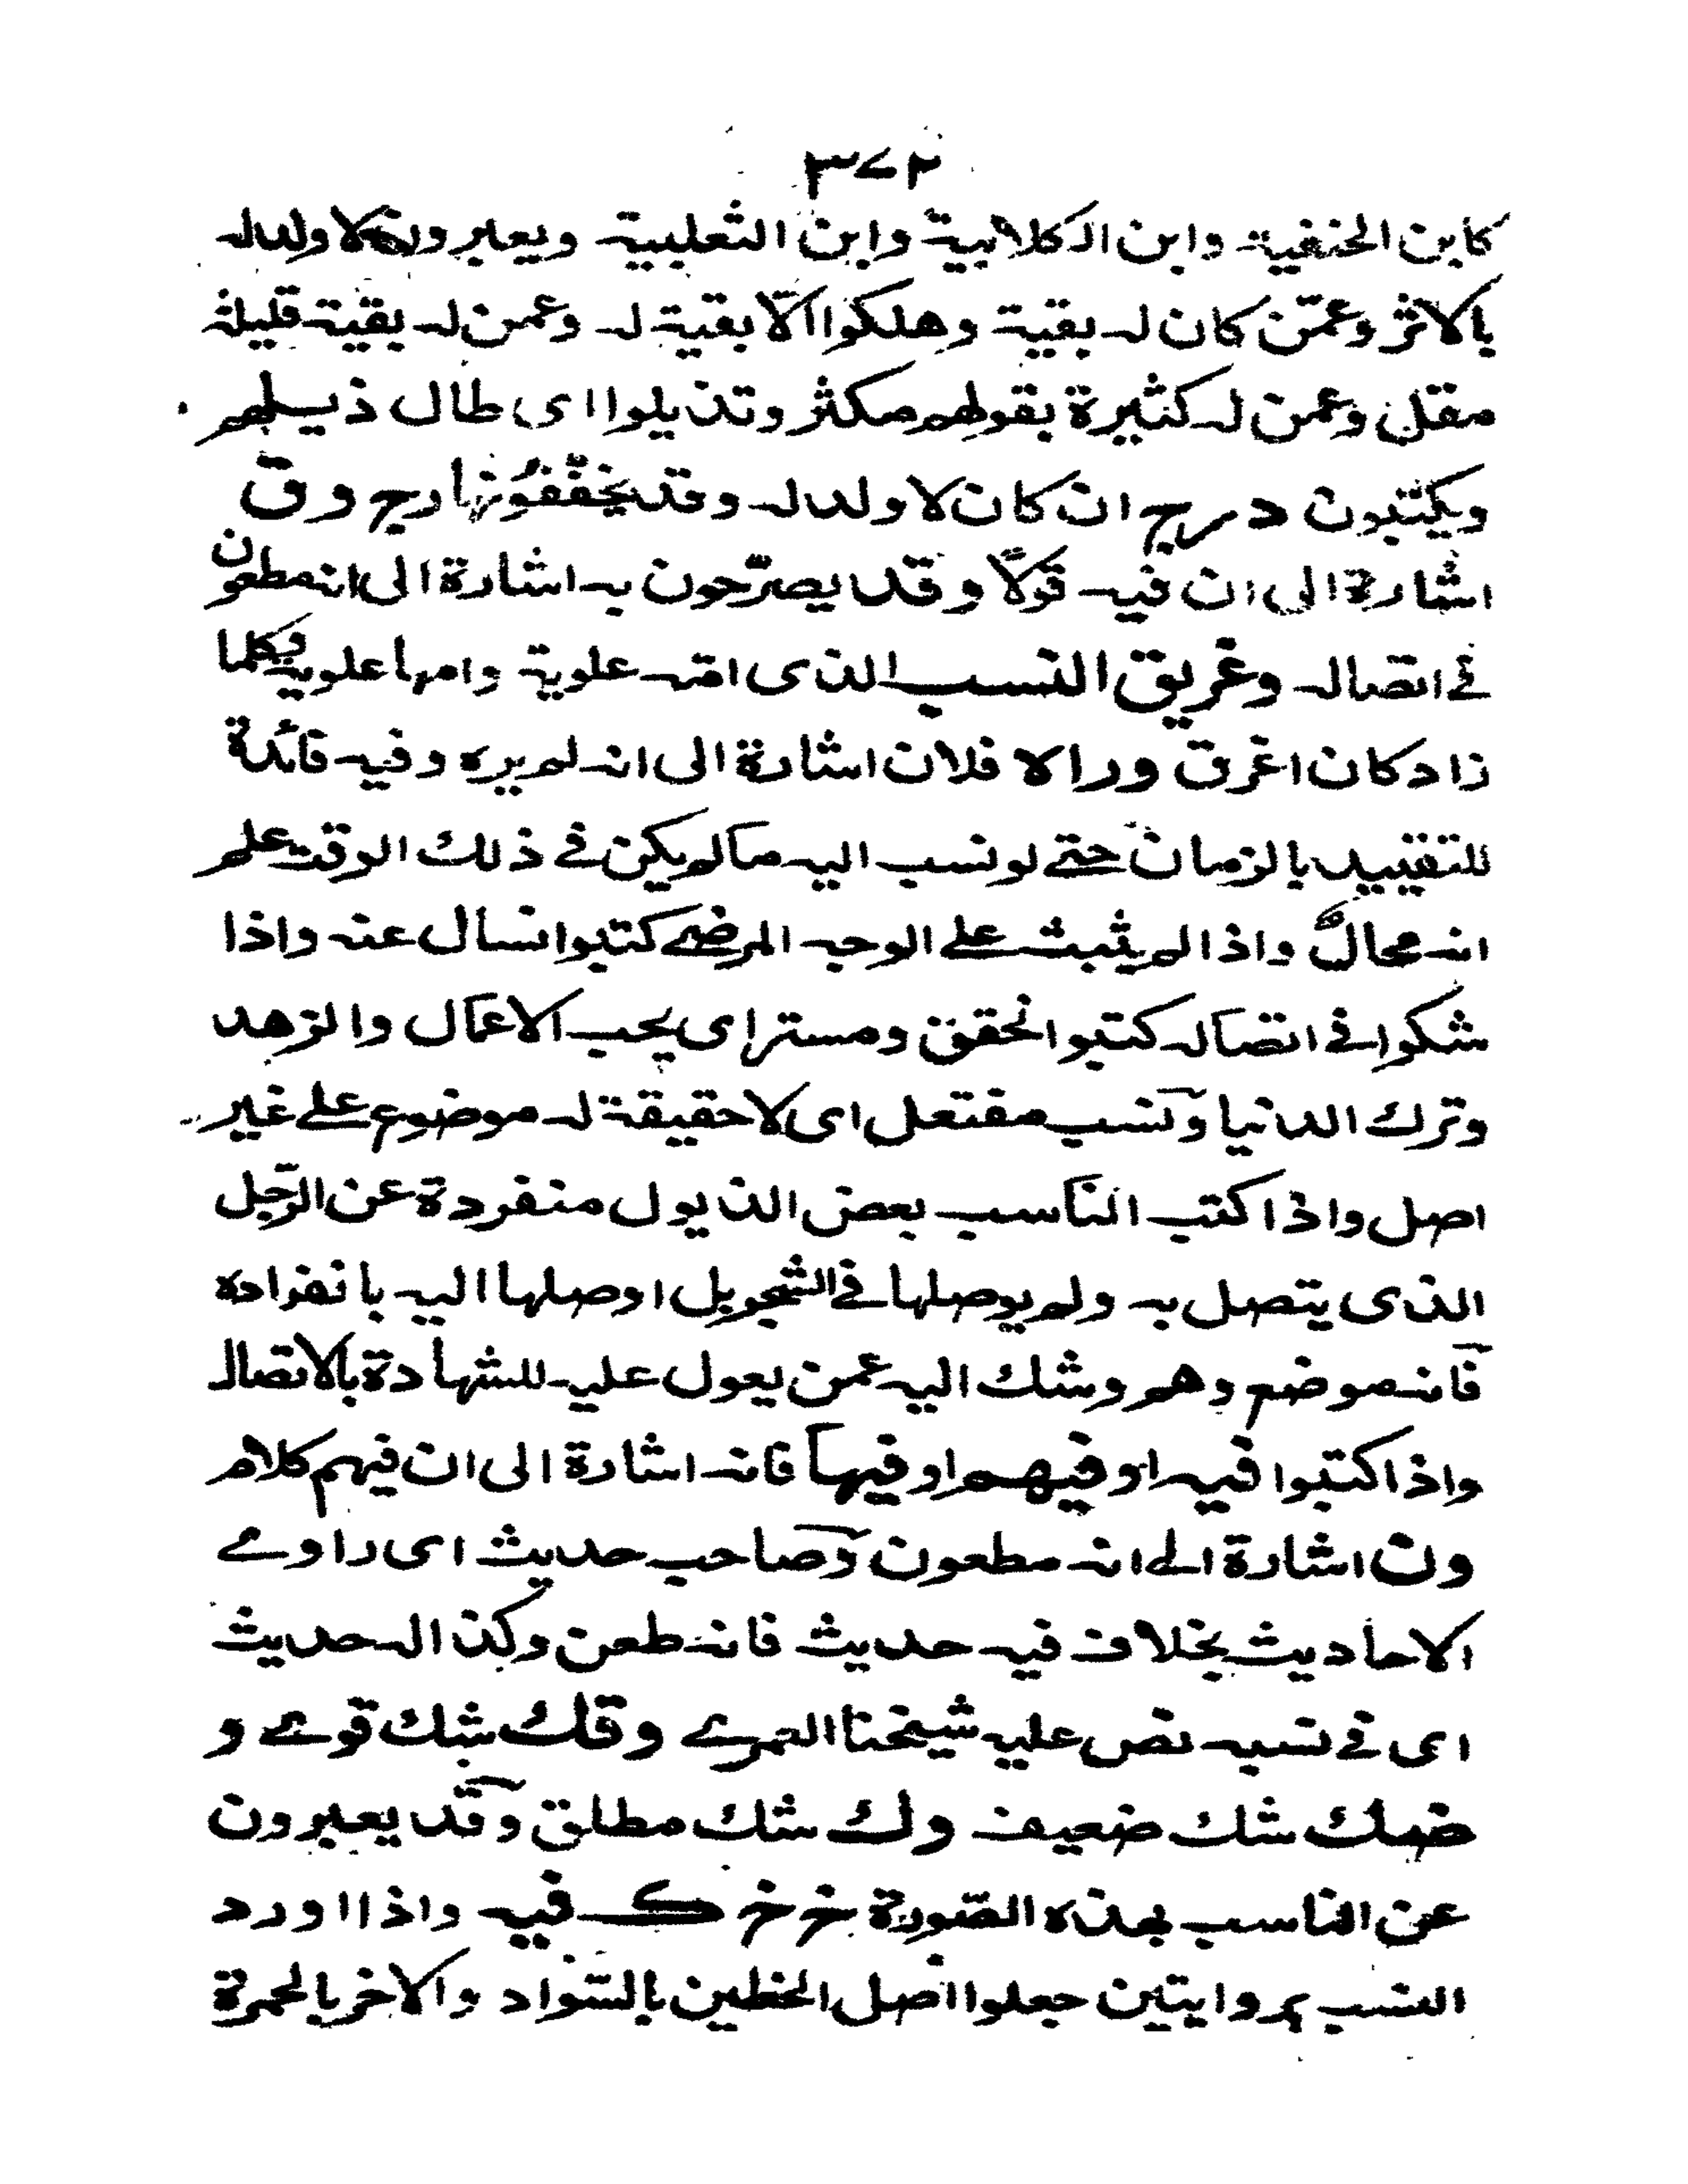 ٣٧٢
كابن الحنفية وابن الكلابية وابن الثعلبية ويعبرون لا ولد له
بالاثر وعمّن كان له بقية وهلكوا الّا بقية له وعمن له بقية قليلة
مقل وعمن له كثيرة بقولهم مكثر وتذيلوا اى طال ذيلهم
ويكتبون درج ان كان لا ولد له وقد يخففونها رج و ق
اشارة الى ان فيه قولًا وقد يصرّحون به اشارة الى انه مطعون
فى اتصاله وغريق النسب الذى امّه علوية وامها علوية وكلما
زاد كان اغرق وراه فلان اشارة الى انه لم يره وفيه فائدة
للتقييد بالزمان حتى لو نسب اليه ما لم يكن فى ذلك الوقت علم
انه محالٌ واذا لم يثبت على الوجه المرضى كتبوا نسال عنه واذا
شكوا فى اتصاله كتبوا لحقق ومستر اى يحب الاعمال والزهد
وترك الدنيا ونسب مفتعل اى لا حقيقة له موضوع على غير
اصل واذا كتب الناسب بعض الذيول منفردة عن الرّجل
الذى يتصل به ولم يوصلها فى الشجر بل اوصلها اليه بانفراده
فانه موضع وهم وشك اليه عمن يعول عليه للشهادة بالاتصال
واذا كتبوا فيه او فيهم او فيها فانه اشارة الى ان فيهم كلام
ون اشارة الى انه مطعون وصاحب حديث اى راوى
الاحاديث بخلاف فيه حديث فانه طعن وكذا له حديث
اى فى نسبه نص عليه شيخنا العمرى وقك شك قوى و
ضك شك ضعيف وك شك مطلق وقد يعبرون
عن الناسب بهذه الصّورة خ خ ك فيه واذا اورد
النسب بروايتين جعلوا اصل الخطين بالسّواد والاخر بالحمرة